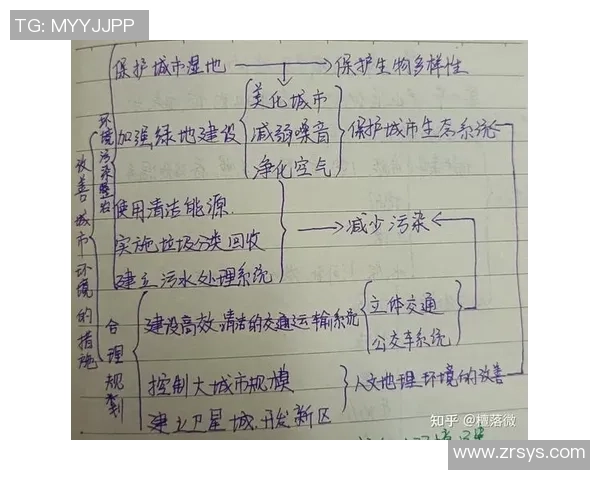 TG: MYYJJPP
保护城市湿地 保护生物多样性
美化城市
加强绿地建设 减弱噪音 保护城市生态系统
净化空气
环境污染整治
使用清洁能源
实施垃圾分类回收 减少污染
建立污水处理系统
改善城市环境的措施
合理规划
建设高效、清洁的交通运输系统 立体交通
公交车系统
控制大城市规模 人文地理环境的改善
建立卫星城,开发新区
知乎 @檀落微
www.zrsys.com